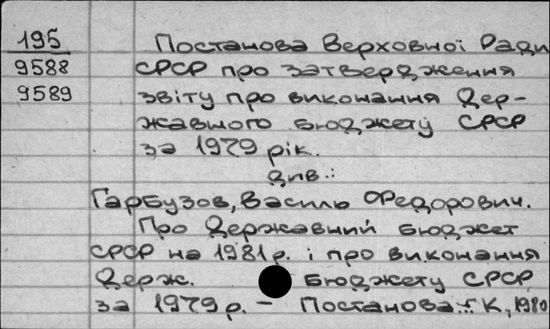 195 Постанова Верховної Ради
9588 СРСР про затвердження
9589 звіту про виконання Дер-
жавного бюджету СРСР
за 1979 рік.
див.:
Гарбузов, Василь Федорович.
Про Державний бюджет
СРСР на 1981 р. і про виконання
Держ. бюджету СРСР
за 1979 р. – Постанова... К., 1980